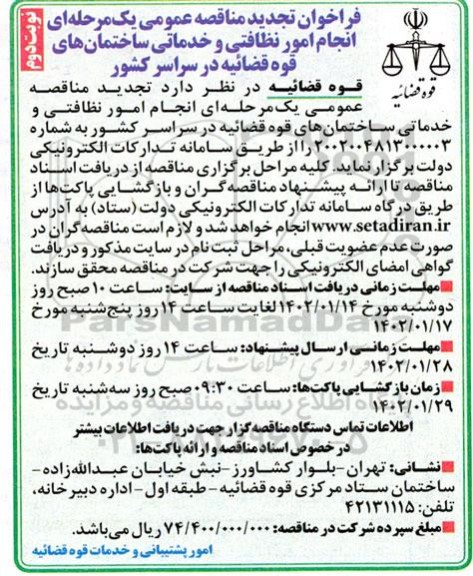 نوبت دوم
فراخوان تجدید مناقصه عمومی یک‌مرحله‌ای
انجام امور نظافتی و خدماتی ساختمان‌های
قوه قضائیه در سراسر کشور
قوه قضائیه
قوه قضائیه در نظر دارد تجدید مناقصه
عمومی یک‌مرحله‌ای انجام امور نظافتی و
خدماتی ساختمان‌های قوه قضائیه در سراسر کشور به شماره
۲۰۰۲۰۰۴۸۱۳۰۰۰۰۰۳ را از طریق سامانه تدارکات الکترونیکی
دولت برگزار نماید. کلیه مراحل برگزاری مناقصه از دریافت اسناد
مناقصه تا ارائه پیشنهاد مناقصه‌گران و بازگشایی پاکت‌ها از
طریق درگاه سامانه تدارکات الکترونیکی دولت (ستاد) به آدرس
www.setadiran.ir انجام خواهد شد و لازم است مناقصه‌گران در
صورت عدم عضویت قبلی، مراحل ثبت نام در سایت مذکور و دریافت
گواهی امضای الکترونیکی را جهت شرکت در مناقصه محقق سازند.
■مهلت زمانی دریافت اسناد مناقصه از سایت: ساعت ۱۰ صبح روز
دوشنبه مورخ ۱۴۰۲/۰۱/۱۴ لغایت ساعت ۱۴ روز پنج‌شنبه مورخ
۱۴۰۲/۰۱/۱۷
■مهلت زمانی ارسال پیشنهاد: ساعت ۱۴ روز دوشنبه تاریخ
۱۴۰۲/۰۱/۲۸
■زمان بازگشایی پاکت‌ها: ساعت ۰۹:۳۰ صبح روز سه‌شنبه تاریخ
۱۴۰۲/۰۱/۲۹
اطلاعات تماس دستگاه مناقصه‌گزار جهت دریافت اطلاعات بیشتر
در خصوص اسناد مناقصه و ارائه پاکت‌ها:
■نشانی: تهران-بلوار کشاورز-نبش خیابان عبدالله‌زاده-
ساختمان ستاد مرکزی قوه قضائیه - طبقه اول - اداره دبیرخانه،
تلفن: ۴۲۱۳۱۱۱۵
■مبلغ سپرده شرکت در مناقصه: ۷۴/۴۰۰/۰۰۰/۰۰۰ ریال می‌باشد.
امور پشتیبانی و خدمات قوه قضائیه
ParsNamadData